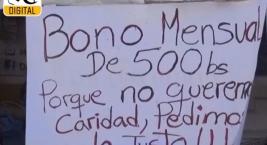 DIGITAL
Bono Mensual
De 500bs
Porque no querem
Caridad, Pedimo
lo Justo!!!